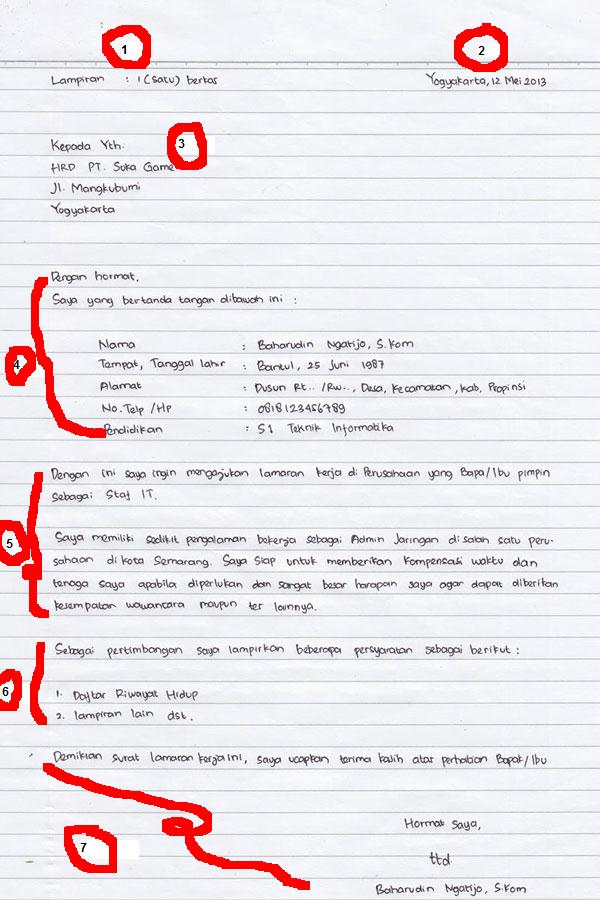 1 2
Lampiran : 1 (satu) berkas Yogyakarta, 12 Mei 2013
Kepada Yth. 3
HRD PT. Suka Game
Jl. Mangkubumi
Yogyakarta
Dengan hormat,
Saya yang bertanda tangan dibawah ini :
Nama : Baharudin Ngatijo, S.Kom
4 Tempat, Tanggal lahir : Bantul, 25 Juni 1987
Alamat : Dusun Rt.. /Rw.., Desa, Kecamatan, Kab, Propinsi
No. Telp /Hp : 0818123456789
Pendidikan : S1 Teknik Informatika
Dengan ini saya ingin mengajukan lamaran kerja di Perusahaan yang Bapa/Ibu pimpin
sebagai Staf IT.
5 Saya memiliki sedikit pengalaman bekerja sebagai Admin Jaringan di salah satu peru-
sahaan di kota Semarang. Saya siap untuk memberikan kompensasi waktu dan
tenaga saya apabila diperlukan dan sangat besar harapan saya agar dapat diberikan
kesempatan wawancara maupun tes lainnya.
Sebagai pertimbangan saya lampirkan beberapa persyaratan sebagai berikut :
6 1. Daftar Riwayat Hidup
2. lampiran lain dst.
Demikian surat lamaran kerja ini, saya ucapkan terima kasih atas perhatian Bapak/Ibu
Hormat Saya,
7 ttd
Baharudin Ngatijo, S.Kom